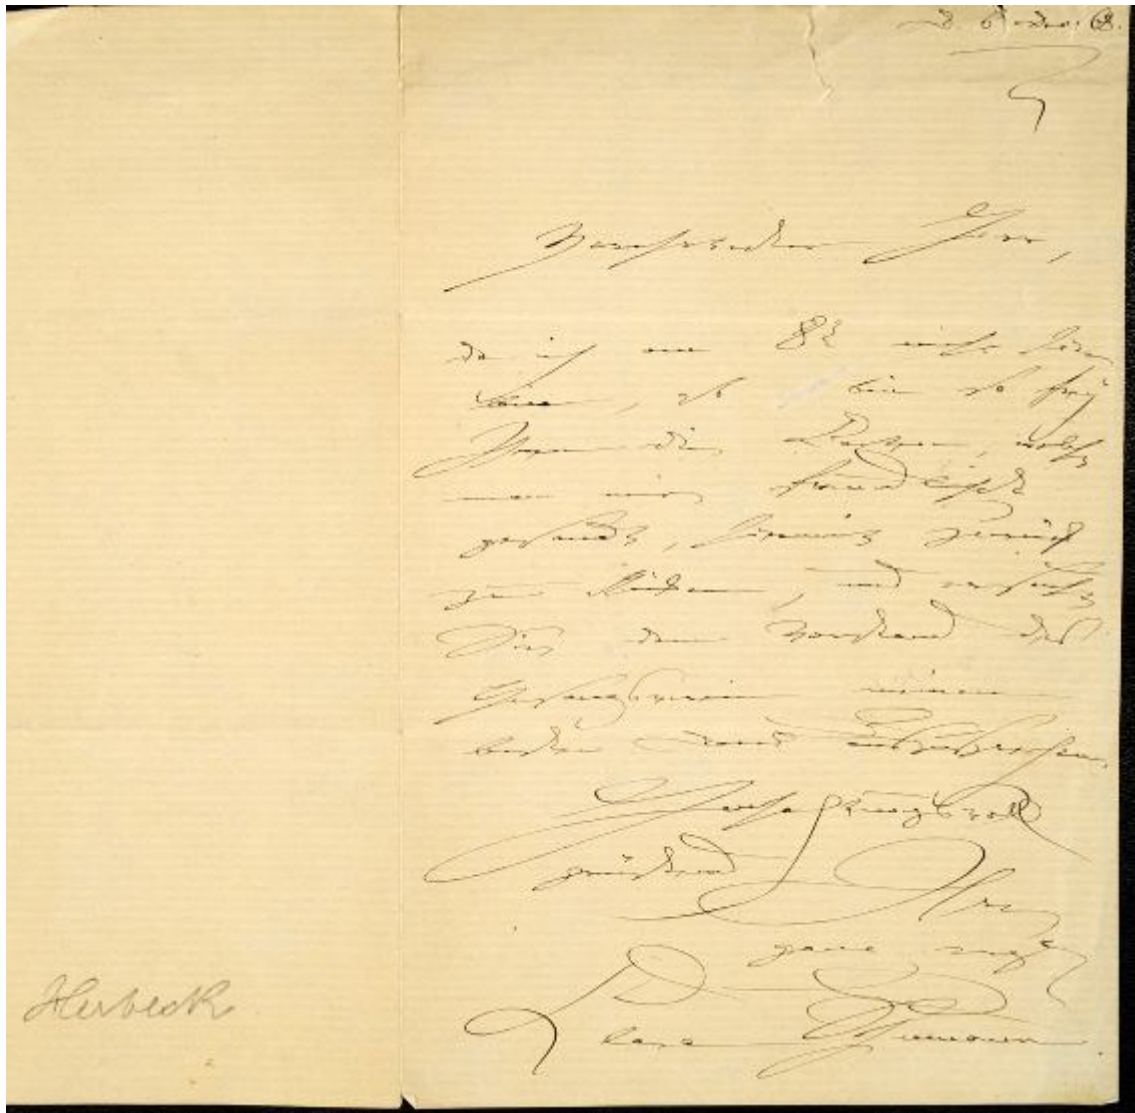 D. 6 Dec. 68.
Verehrtester Herr,
da ich am 8t nicht hier
bin, so bin so frey
Ihnen die Karten, welche
man mir freundlichst
gesandt, hiermit zurück
zu schicken, und ersuche
Sie dem Vorstand des
Gesangverein meinen
besten Dank auszusprechen.
Hochachtungsvoll
grüßend
Ihre
ganz erg.
Clara Schumann
Herbeck